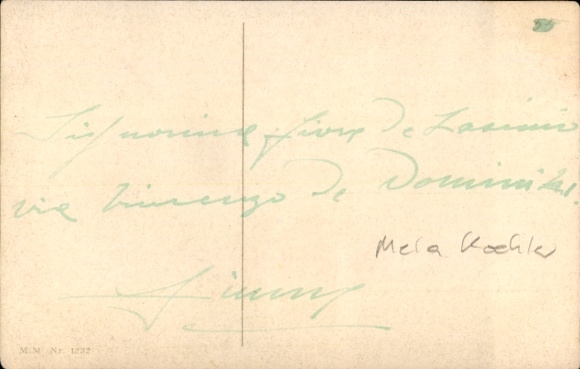 Signorina Fiore de Lasinio
via Vincenzo de Dominikis.
Mela Koehler
Fiume
M.M. Nr. 1232